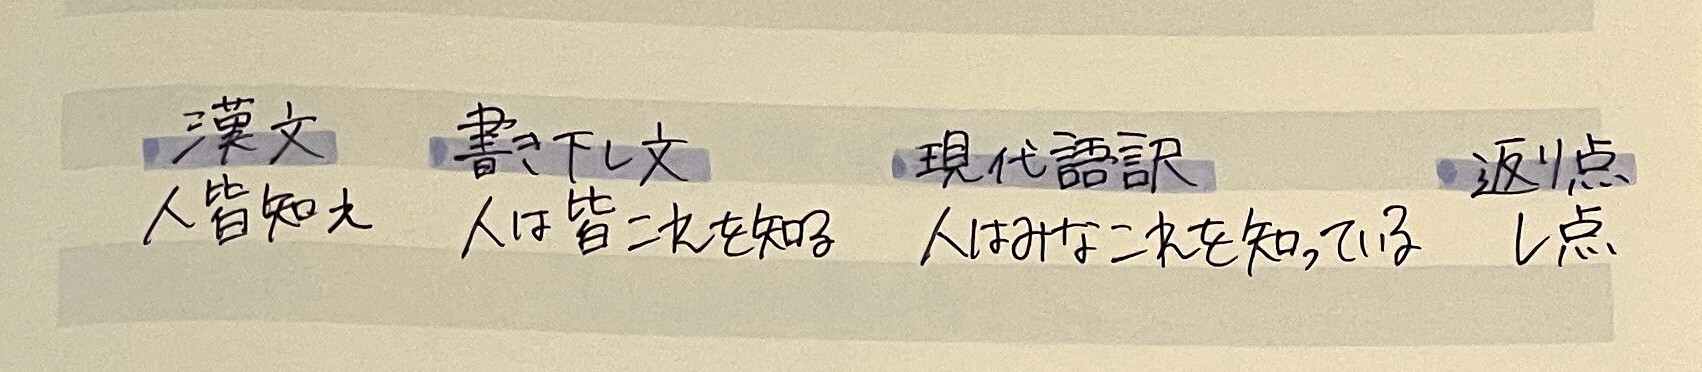 漢文 書き下し文 現代語訳 返り点
人皆知え 人は皆これを知る 人はみなこれを知っている レ点